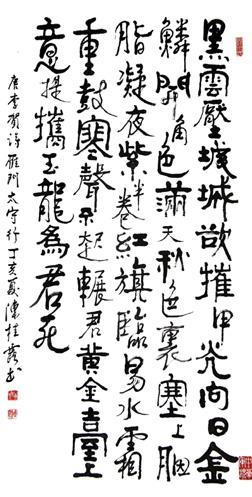 黑雲壓城城欲摧甲光向日金
鱗開角色滿天秋色裏塞上胭
脂凝夜紫半卷紅旗臨易水霜
重鼓寒聲不起報君黃金臺上
意提攜玉龍為君死
唐李賀詩雁門太守行丁亥夏陳桂書